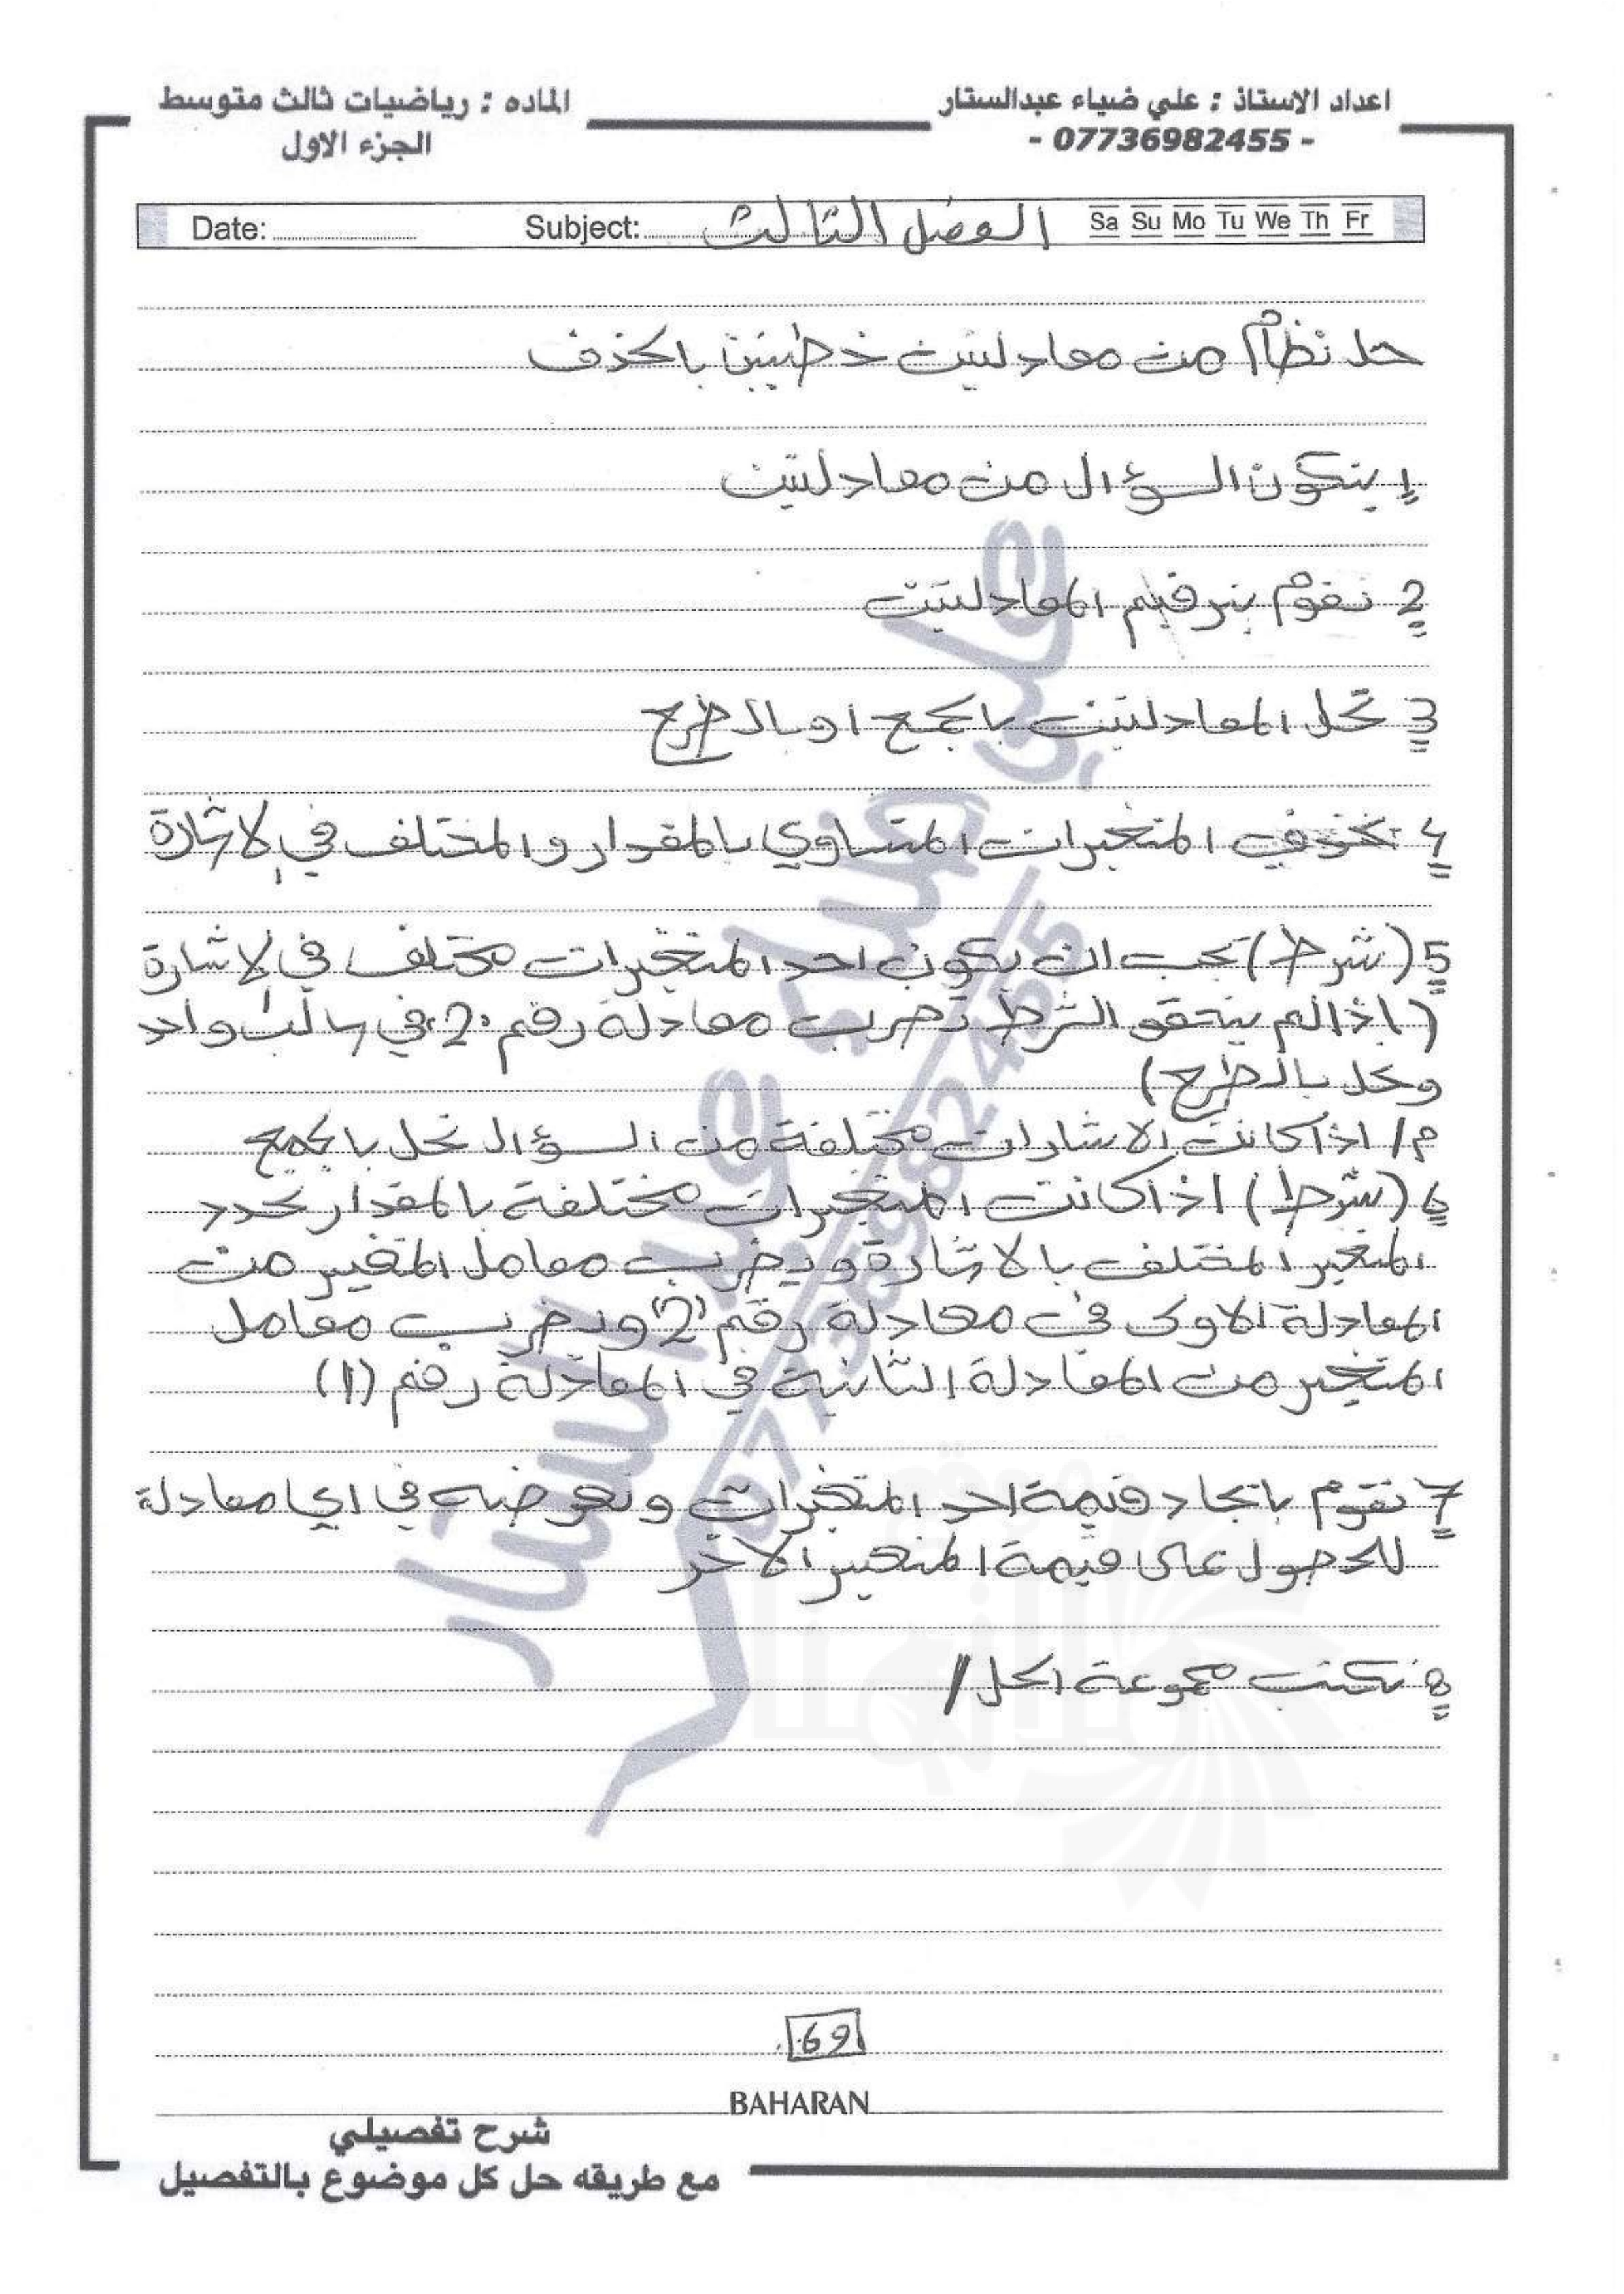 اعداد الاستاذ : علي ضياء عبدالستار
- 07736982455 -
الماده : رياضيات ثالث متوسط
الجزء الاول
Date: Subject: الفصل الثالث Sa Su Mo Tu We Th Fr
حل نظام من معادلتين خطيتين بالحذف
1 يتكون السؤال من معادلتين
2 نقوم بترقيم المعادلتين
3 تحل المعادلتين بالجمع او بالطرح
4 نحذف المتغيرات المتساوي بالمقدار والمختلف في الاشارة
5 (شرط) يجب ان يكون احد المتغيرات مختلف في الاشارة
(اذا لم يتحقق الشرط نضرب معادلة رقم 2 في سالب واحد
وتحل بالطرح)
م/ اذا كانت الاشارات مختلفة من السؤال تحل بالجمع
6 (شرط) اذا كانت المتغيرات مختلفة بالمقدار نحدد
المتغير المختلف بالاشارة ويضرب معامل المتغير من
المعادلة الاولى في معادلة رقم "2" ونضرب معامل
المتغير من المعادلة الثانية في المعادلة رقم (1)
7 نقوم بايجاد قيمة احد المتغيرات ونعوضه في اي معادلة
للحصول على قيمة المتغير الاخر
8 نكتب مجموعة الحل /
علي ضياء عبد الستار
07736982455
69
BAHARAN
شرح تفصيلي
مع طريقه حل كل موضوع بالتفصيل